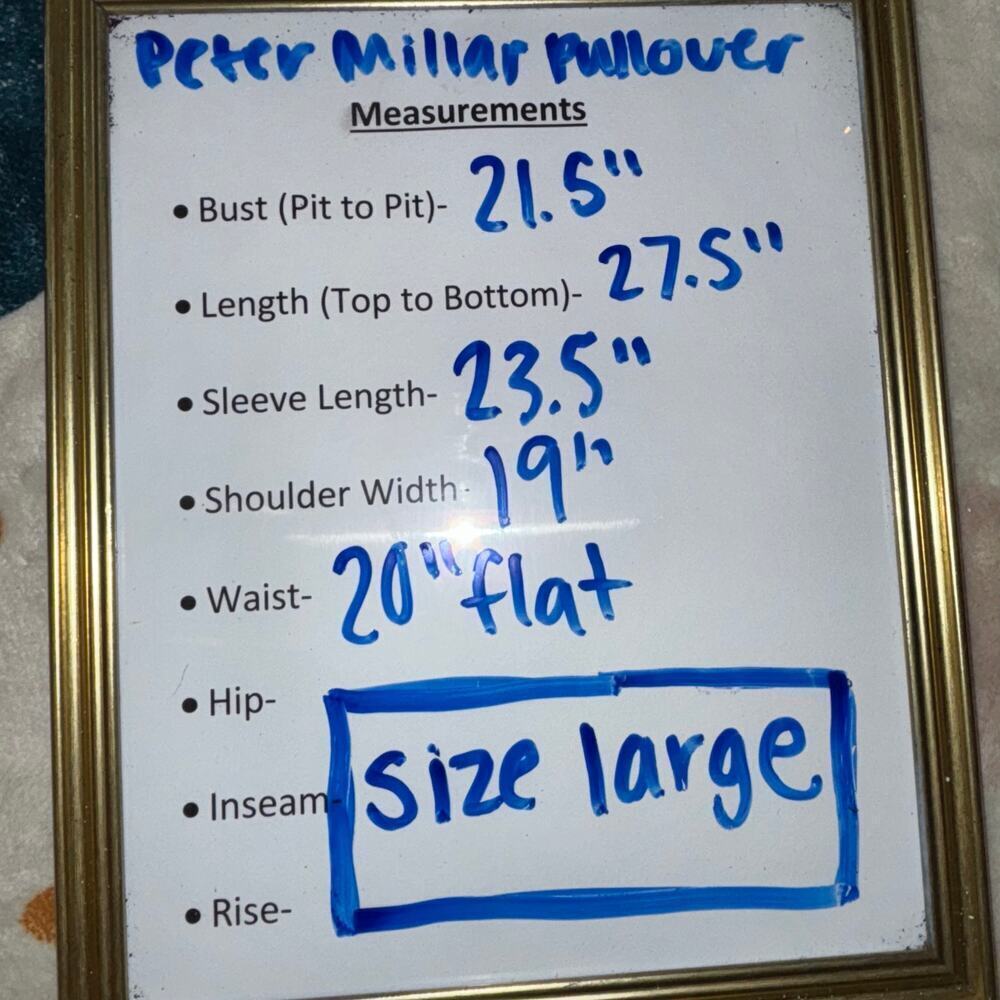 Peter Millar Pullover
Measurements
• Bust (Pit to Pit)- 21.5"
• Length (Top to Bottom)- 27.5"
• Sleeve Length- 23.5"
• Shoulder Width- 19"
• Waist- 20" flat
• Hip-
size large
• Inseam-
• Rise-